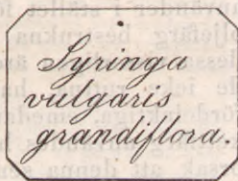 Syringa
vulgaris
grandiflora.